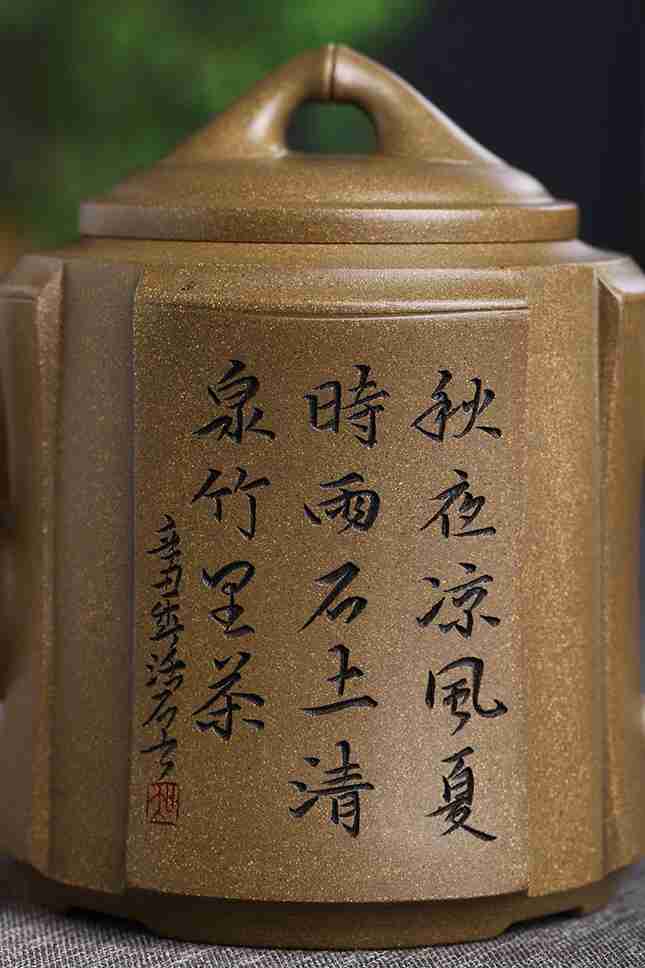 秋夜凉風夏
時雨石上清
泉竹里茶
辛丑年浩石书